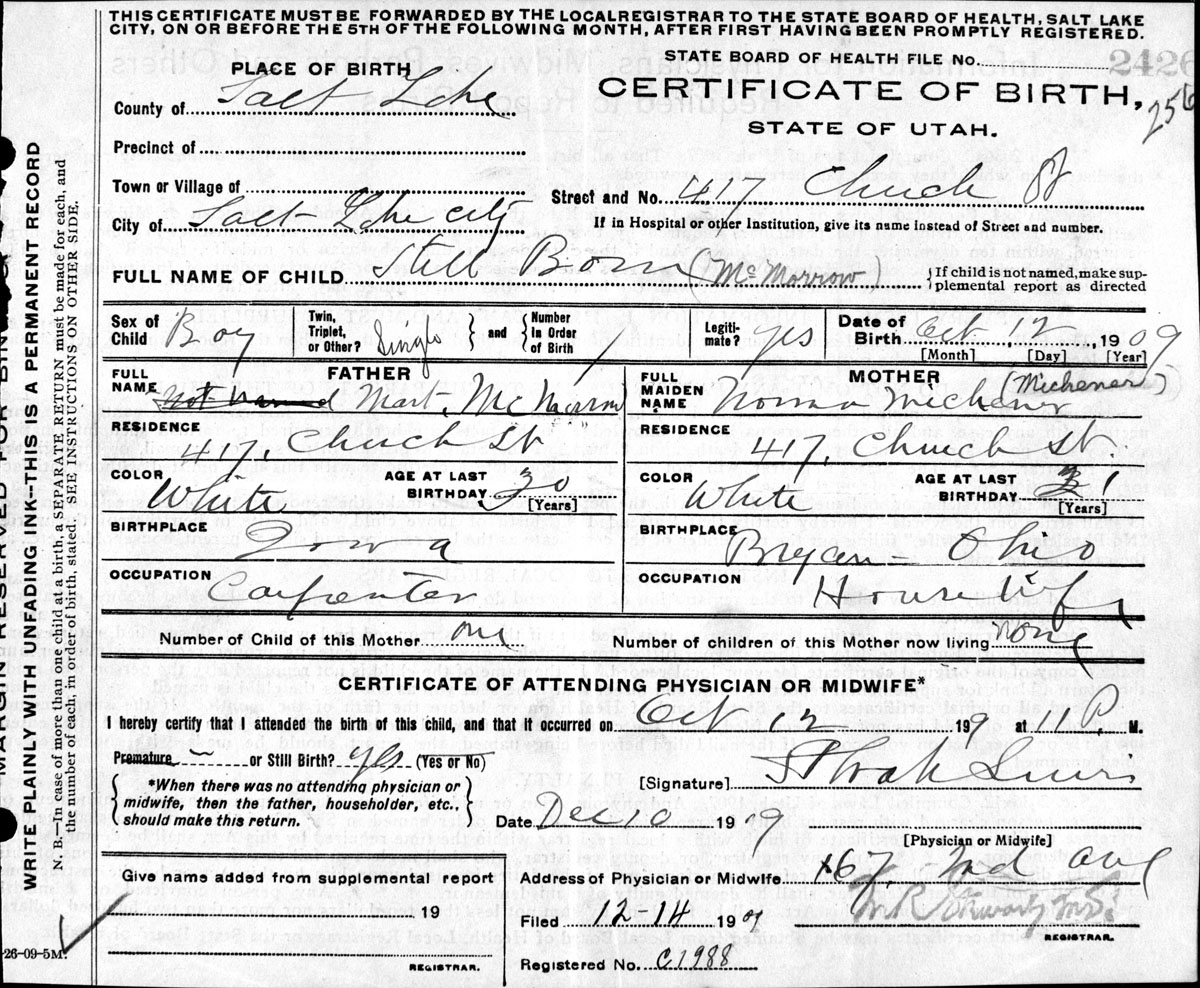 THIS CERTIFICATE MUST BE FORWARDED BY THE LOCAL REGISTRAR TO THE STATE BOARD OF HEALTH, SALT LAKE
CITY, ON OR BEFORE THE 5TH OF THE FOLLOWING MONTH, AFTER FIRST HAVING BEEN PROMPTLY REGISTERED.
STATE BOARD OF HEALTH FILE No. 2426
PLACE OF BIRTH
CERTIFICATE OF BIRTH,
256
County of Salt Lake
STATE OF UTAH.
Precinct of
Town or Village of
Street and No. 417 Church St
City of Salt Lake City
If in Hospital or other Institution, give its name instead of Street and number.
FULL NAME OF CHILD Still Born (McMorrow)
{If child is not named, make sup-
plemental report as directed
Sex of Child Boy
Twin, Triplet, or Other? Single } and { Number in Order of Birth 1
Legiti-mate? yes
Date of Birth Oct 12, 1909
[Month] [Day] [Year]
FATHER
FULL NAME Mart.
RESIDENCE 417, Church St.
COLOR White
AGE AT LAST BIRTHDAY 30 [Years]
BIRTHPLACE Iowa
OCCUPATION Carpenter
MOTHER (Michener)
FULL MAIDEN NAME Norma Michener
RESIDENCE 417, Church St.
COLOR White
AGE AT LAST BIRTHDAY [Years]
BIRTHPLACE Bryan - Ohio
OCCUPATION Housewife
Number of Child of this Mother one
Number of children of this Mother now living none
CERTIFICATE OF ATTENDING PHYSICIAN OR MIDWIFE*
I hereby certify that I attended the birth of this child, and that it occurred on Oct 12 199 at 1 P. M.
Premature or Still Birth? yes (Yes or No)
{ *When there was no attending physician or
midwife, then the father, householder, etc.,
should make this return. }
[Signature]
Date Dec 10 1909
[Physician or Midwife]
Give name added from supplemental report
19
REGISTRAR.
Address of Physician or Midwife 167, ave
Filed 12 14 1909
REGISTRAR.
Registered No. C1988
MARGIN RESERVED FOR BINDING
WRITE PLAINLY WITH UNFADING INK—THIS IS A PERMANENT RECORD
N. B.—In case of more than one child at a birth, a SEPARATE RETURN must be made for each, and
the number of each, in order of birth, stated. SEE INSTRUCTIONS ON OTHER SIDE.
26-09-5M.